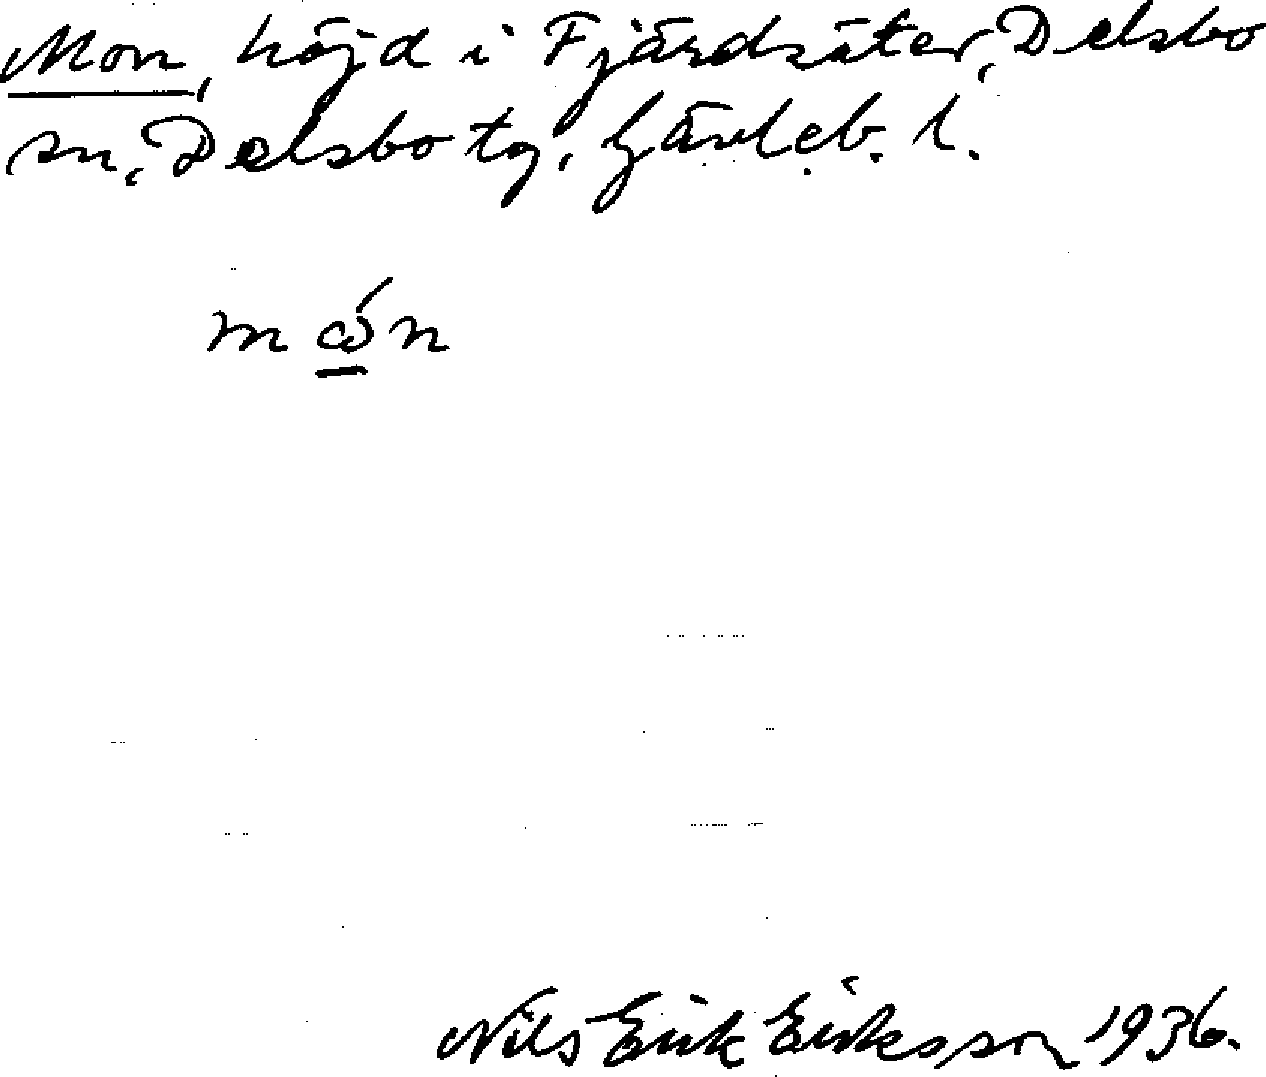 Mon, höjd i Fjärdsäter, Delsbo
sn, Delsbo tg, Gävleb. l.
mɷ́n
Nils Erik Eriksson 1936.